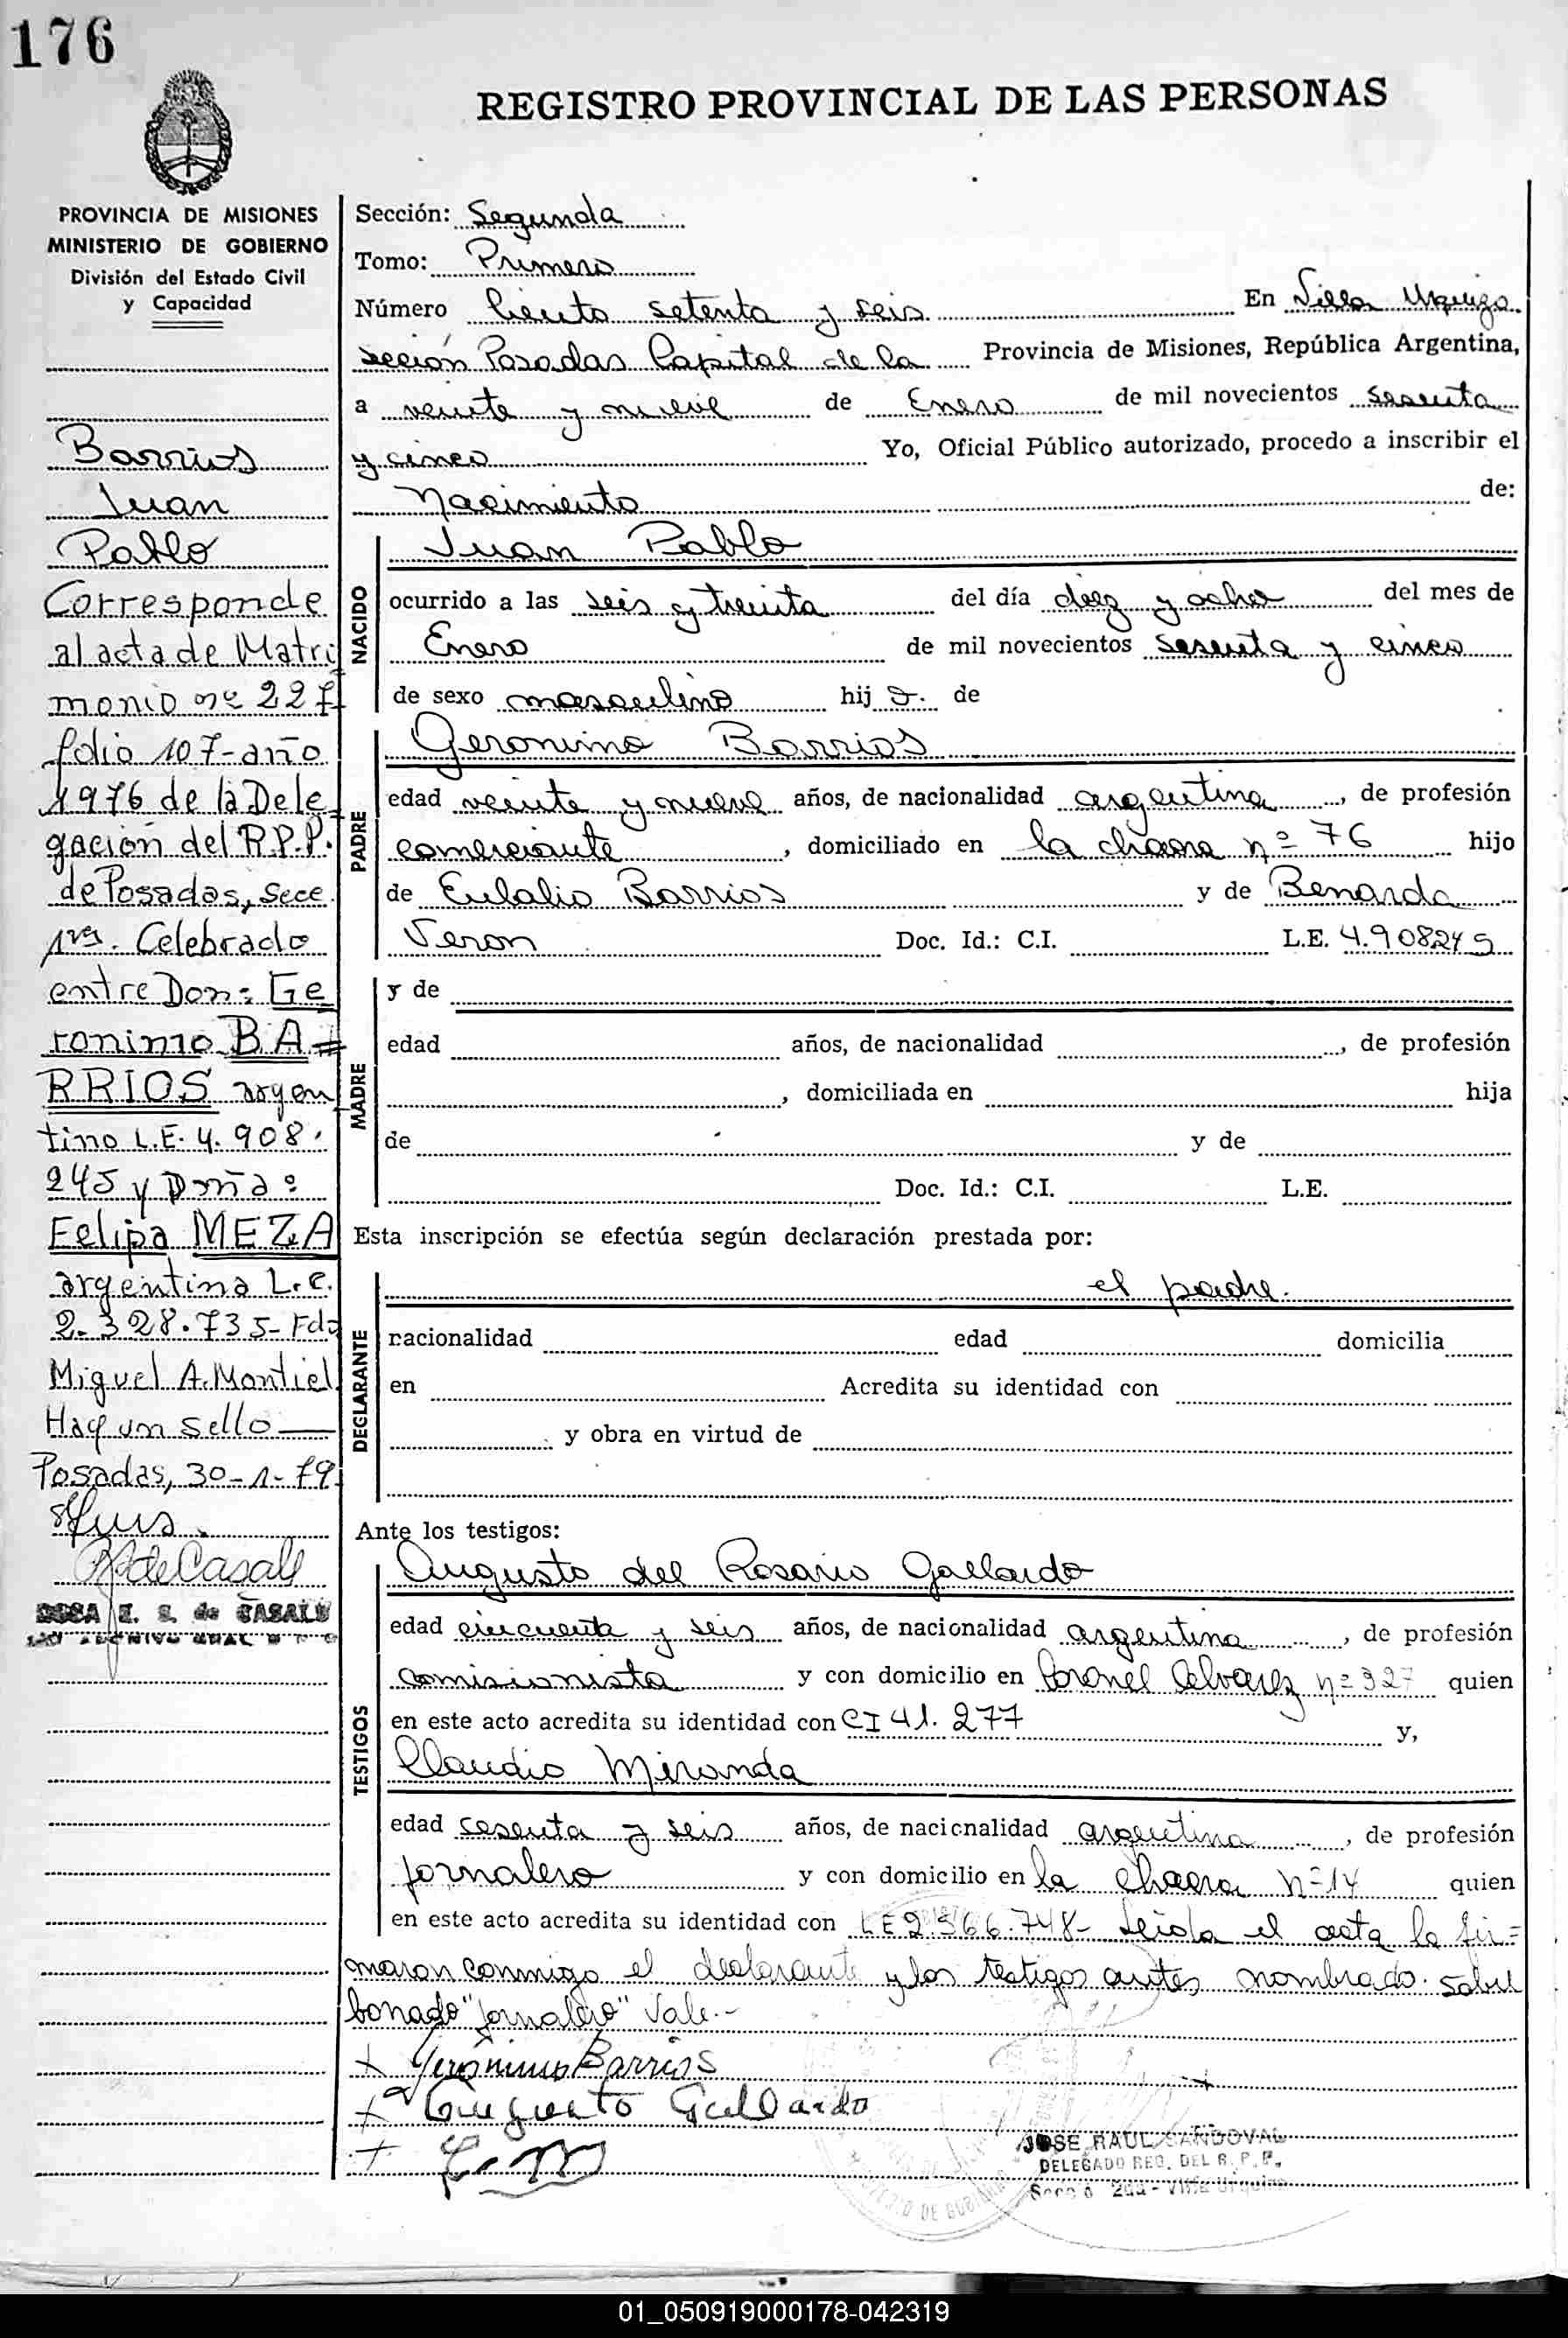 176
REGISTRO PROVINCIAL DE LAS PERSONAS
PROVINCIA DE MISIONES
MINISTERIO DE GOBIERNO
División del Estado Civil
y Capacidad
Barrios
Juan
Pablo
Corresponde
al acta de Matri
monio nº 227
folio 107-año
1976 de la Dele
gación del R.P.P.
de Posadas, Secc
1ra. Celebrado
entre Don: Ge
ronimo BA=
RRIOS argen
tino L.E. 4.908.
245 y Doña:
Felipa MEZA
argentina L.C.
2.328.735- Fdo
Miguel A. Montiel
Hay un sello
Posadas, 30-1-79
R de Casals
ROSA E. S. de CASALS
Sección: Segunda
Tomo: Primero
Número Ciento setenta y seis En Villa Urquiza
sección Posadas Capital de la Provincia de Misiones, República Argentina,
a veinte y nueve de Enero de mil novecientos sesenta
y cinco Yo, Oficial Público autorizado, procedo a inscribir el
Nacimiento de:
NACIDO
Juan Pablo
ocurrido a las seis y treinta del día diez y ocho del mes de
Enero de mil novecientos sesenta y cinco
de sexo masculino hij o. de
PADRE
Geronimo Barrios
edad veinte y nueve años, de nacionalidad argentina, de profesión
comerciante, domiciliado en la chacra nº 76 hijo
de Eulalio Barrios y de Benarda
Veron Doc. Id.: C.I. L.E. 4.908245
MADRE
y de
edad años, de nacionalidad , de profesión
, domiciliada en hija
de y de
Doc. Id.: C.I. L.E.
Esta inscripción se efectúa según declaración prestada por:
DECLARANTE
el padre.
racionalidad edad domicilia
en Acredita su identidad con
y obra en virtud de
Ante los testigos:
TESTIGOS
Augusto del Rosario Gallardo
edad cincuenta y seis años, de nacionalidad argentina, de profesión
comisionista y con domicilio en Coronel Alvarez nº 327 quien
en este acto acredita su identidad con CI 41.277 y,
Claudio Miranda
edad sesenta y seis años, de nacionalidad argentina, de profesión
jornalero y con domicilio en la chacra nº 14 quien
en este acto acredita su identidad con LE 2.566.748- Leida el acta la fir=
maron conmigo el declarante y los testigos antes nombrado. sobre
bonado "jornalero" Vale.-
Gerónimo Barrios
Augusto Gallardo
JOSE RAUL SANDOVAL
DELEGADO REG. DEL R. P. P.
Secc ó 2da - Villa Urquiza
01_050919000178-042319